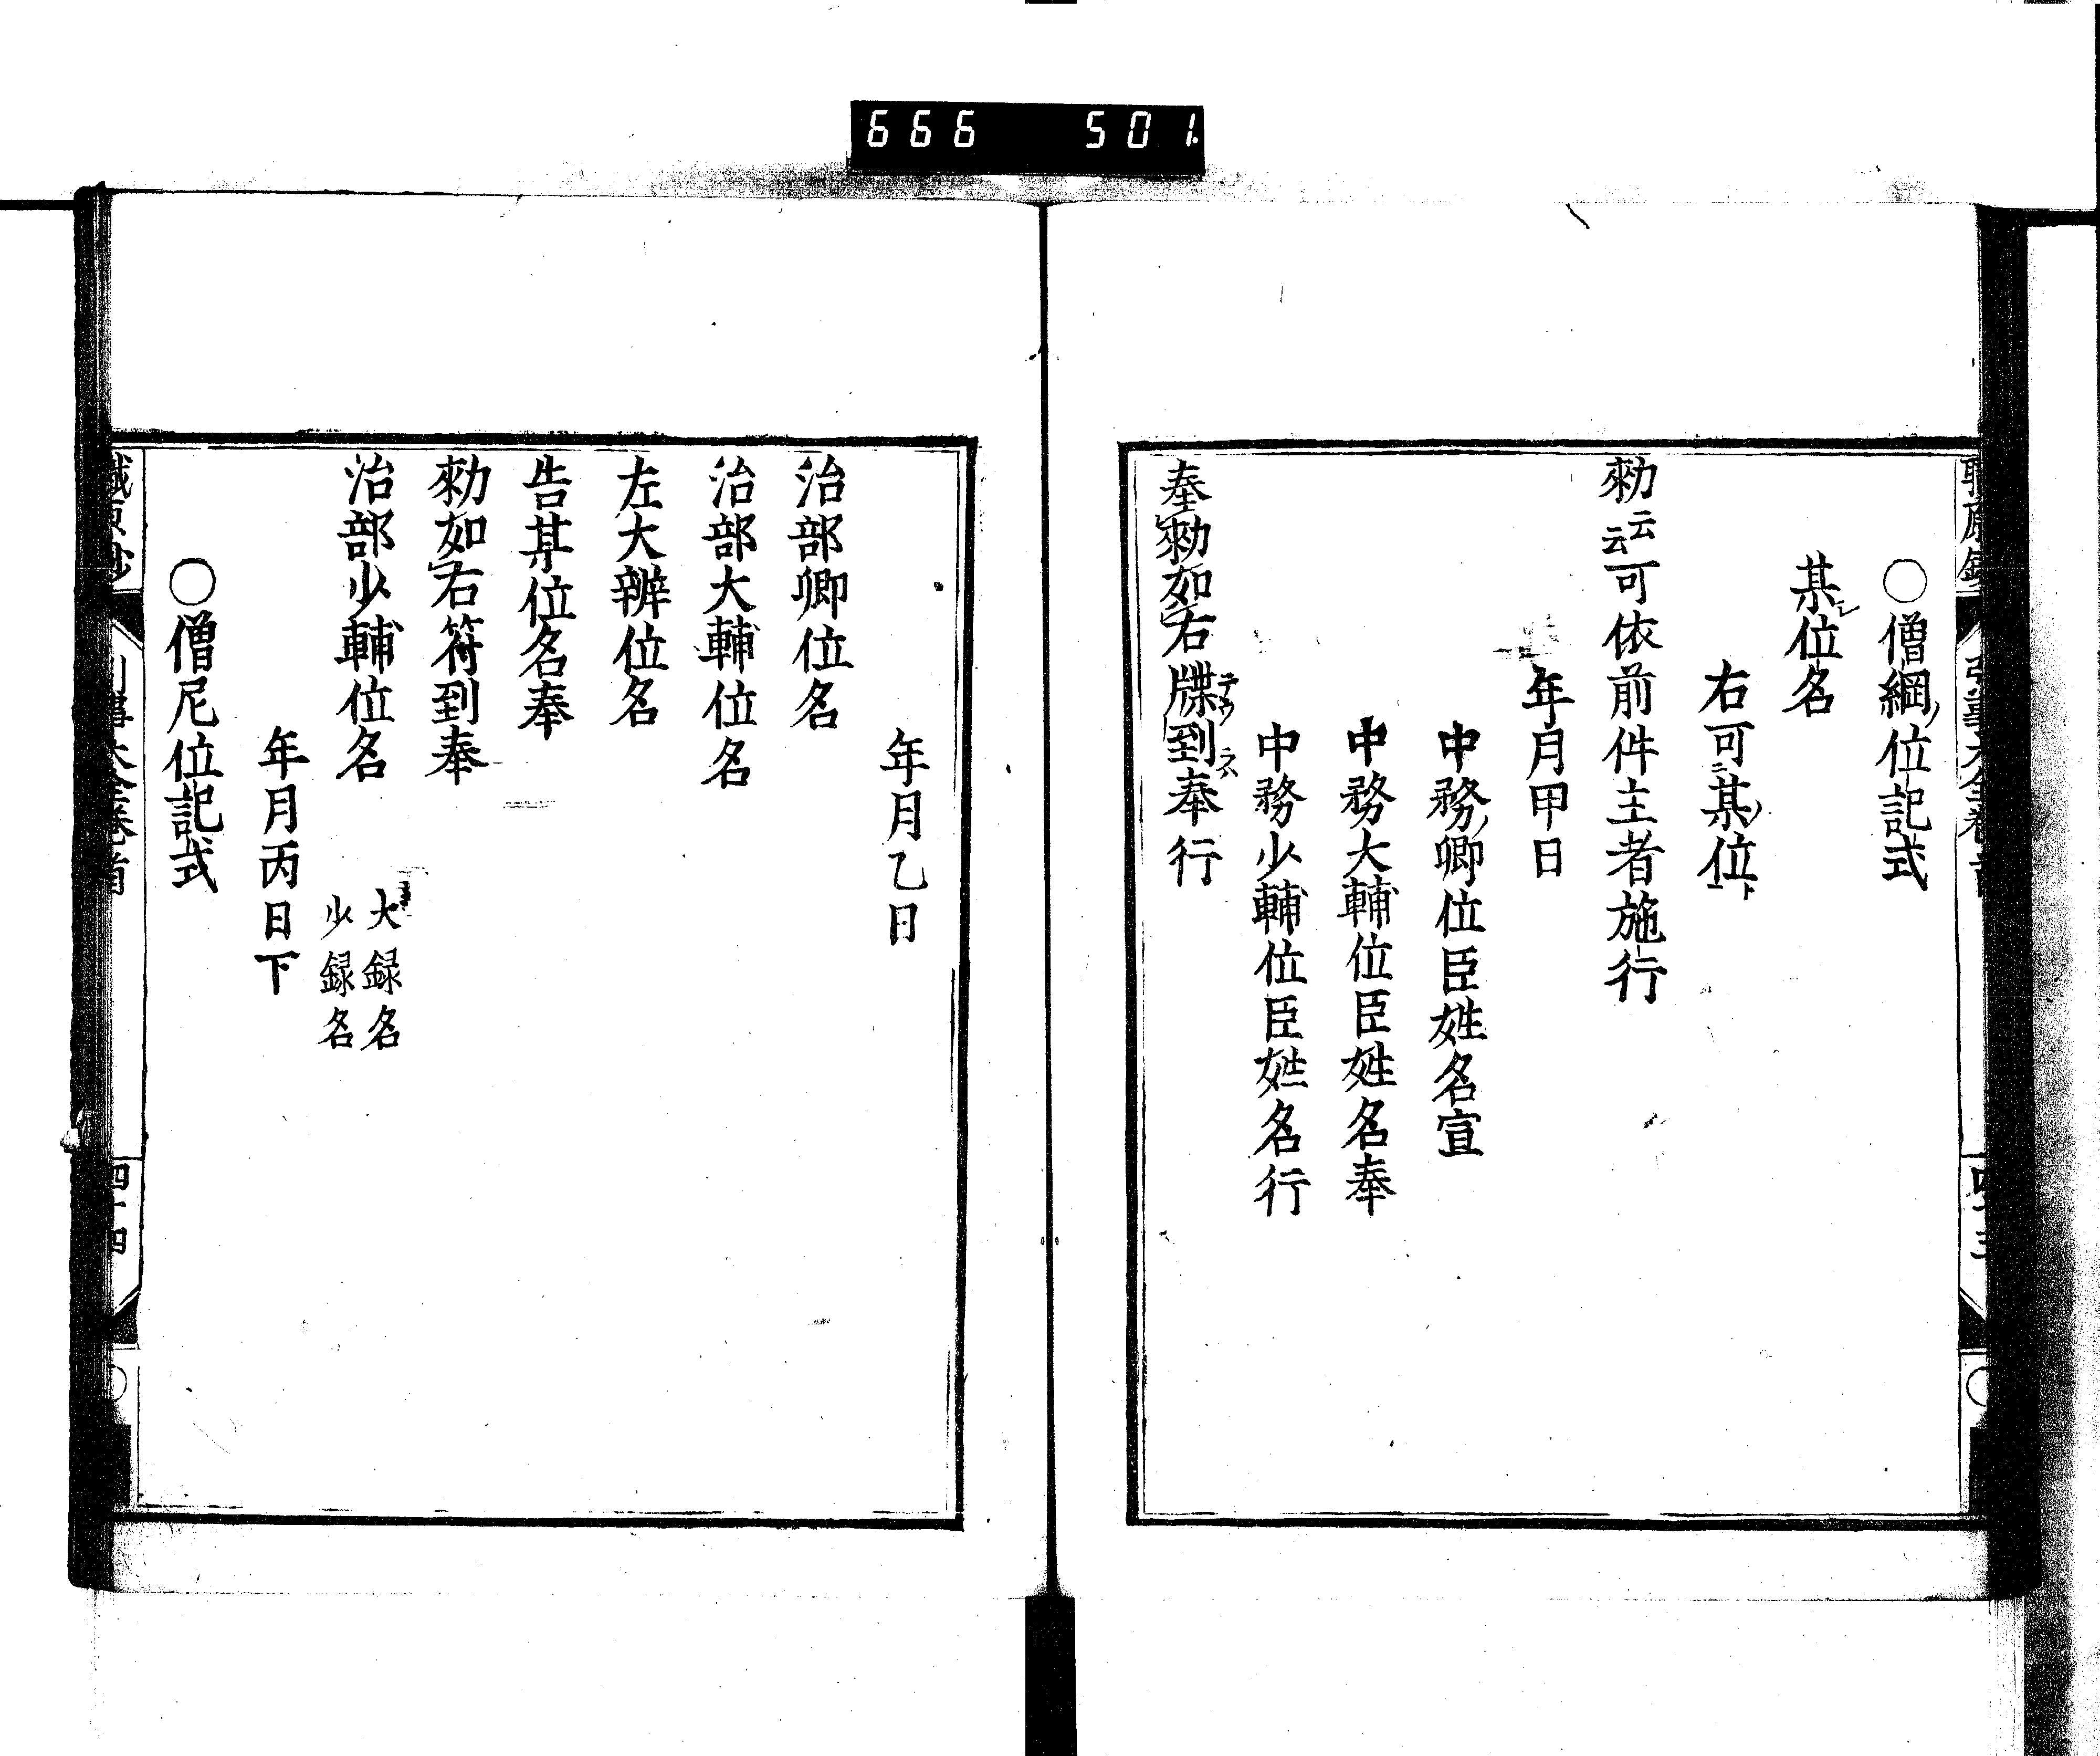 666 501
○僧綱ノ位記式
某シ位名
右可某ノ位
勅云云可依前件主者施行
年月甲日
中務ノ卿位臣姓名宣
中務大輔位臣姓名奉
中務少輔位臣姓名行
奉勅如右牒到奉行
年月乙日
治部卿位名
治部大輔位名
左大辨位名
告某位名奉
勅如右符到奉
治部少輔位名
大録名
少録名
年月丙日下
○僧尼位記式
四十四